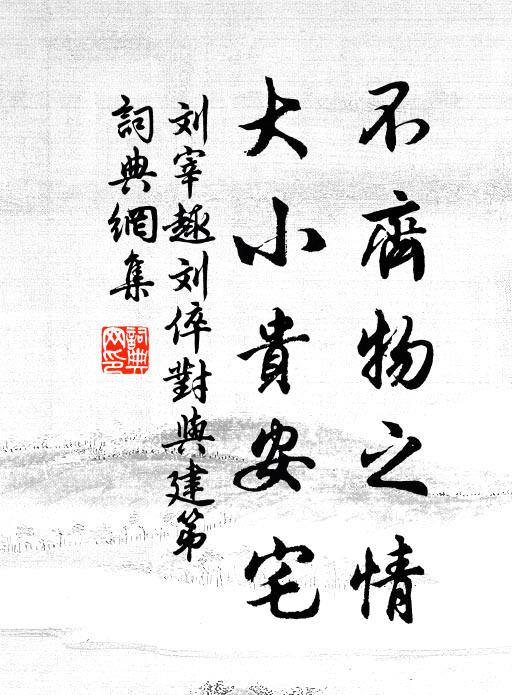 不齊物之情
大小貴安宅
刘宰趣刘倅對與建第
詞典網集
詞典
网印